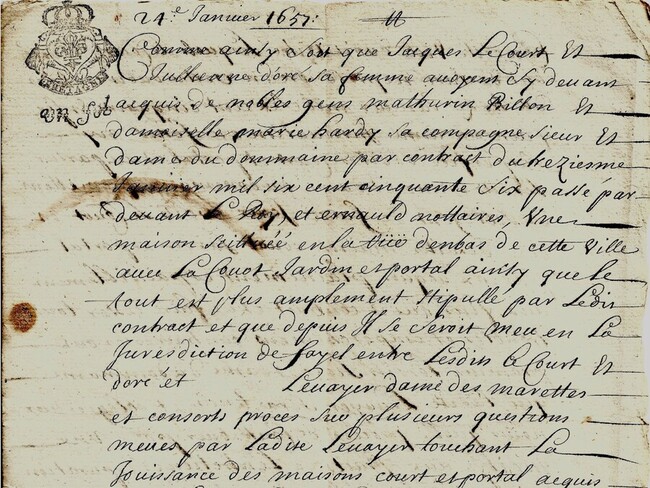 24.e Janvier 1657.
BRETAGNE
un sol
Comme ainsy soit que Jacques Le Court Et
Jullienne doré sa femme auoyent Cy deuant
acquis de nobles gens mathurin Billon Et
damoiselle marie hardy sa compagne sieur Et
dame du dommaine par contract du treziesme
Januier mil six cent cinquante six passé par
deuant Le Roy, et ernauld nottaires, Vne
maison scittuéé en la rüe denbas de cette Ville
auec La Court Jardin et portal ainsy que le
tout est plus amplement stipullé par Ledit
contract et que depuis Il se seroit meu en La
Jurisdiction de fayel entre Lesdits Le Court Et
doré et Leuayer dame des marettes
et consorts proces sur plusieurs questions
meues par Ladite Leuayer touchant La
Jouissance des maisons court et portal acquis